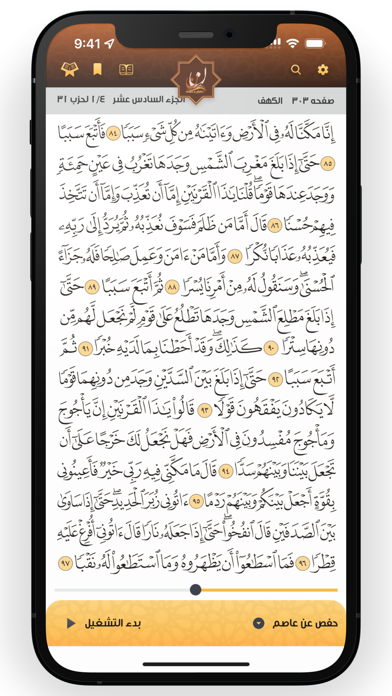 9:41
صفحه ٣٠٣ الكهف الجزء السادس عشر ١/٤ لحزب ٣١
إِنَّا مَكَّنَّا لَهُ فِي الْأَرْضِ وَءَاتَيْنَٰهُ مِن كُلِّ شَيْءٍ سَبَبًا ٨٤ فَأَتْبَعَ سَبَبًا
٨٥ حَتَّىٰ إِذَا بَلَغَ مَغْرِبَ الشَّمْسِ وَجَدَهَا تَغْرُبُ فِي عَيْنٍ حَمِئَةٍ
وَوَجَدَ عِندَهَا قَوْمًا قُلْنَا يَٰذَا الْقَرْنَيْنِ إِمَّا أَن تُعَذِّبَ وَإِمَّا أَن تَتَّخِذَ
فِيهِمْ حُسْنًا ٨٦ قَالَ أَمَّا مَن ظَلَمَ فَسَوْفَ نُعَذِّبُهُ ثُمَّ يُرَدُّ إِلَىٰ رَبِّهِ
فَيُعَذِّبُهُ عَذَابًا نُّكْرًا ٨٧ وَأَمَّا مَنْ ءَامَنَ وَعَمِلَ صَٰلِحًا فَلَهُ جَزَاءً
الْحُسْنَىٰ وَسَنَقُولُ لَهُ مِنْ أَمْرِنَا يُسْرًا ٨٨ ثُمَّ أَتْبَعَ سَبَبًا ٨٩ حَتَّىٰ
إِذَا بَلَغَ مَطْلِعَ الشَّمْسِ وَجَدَهَا تَطْلُعُ عَلَىٰ قَوْمٍ لَّمْ نَجْعَل لَّهُم مِّن
دُونِهَا سِتْرًا ٩٠ كَذَٰلِكَ وَقَدْ أَحَطْنَا بِمَا لَدَيْهِ خُبْرًا ٩١ ثُمَّ
أَتْبَعَ سَبَبًا ٩٢ حَتَّىٰ إِذَا بَلَغَ بَيْنَ السَّدَّيْنِ وَجَدَ مِن دُونِهِمَا قَوْمًا
لَّا يَكَادُونَ يَفْقَهُونَ قَوْلًا ٩٣ قَالُوا يَٰذَا الْقَرْنَيْنِ إِنَّ يَأْجُوجَ
وَمَأْجُوجَ مُفْسِدُونَ فِي الْأَرْضِ فَهَلْ نَجْعَلُ لَكَ خَرْجًا عَلَىٰ أَن
تَجْعَلَ بَيْنَنَا وَبَيْنَهُمْ سَدًّا ٩٤ قَالَ مَا مَكَّنِّي فِيهِ رَبِّي خَيْرٌ فَأَعِينُونِي
بِقُوَّةٍ أَجْعَلْ بَيْنَكُمْ وَبَيْنَهُمْ رَدْمًا ٩٥ ءَاتُونِي زُبَرَ الْحَدِيدِ حَتَّىٰ إِذَا سَاوَىٰ
بَيْنَ الصَّدَفَيْنِ قَالَ انفُخُوا حَتَّىٰ إِذَا جَعَلَهُ نَارًا قَالَ ءَاتُونِي أُفْرِغْ عَلَيْهِ
قِطْرًا ٩٦ فَمَا اسْطَٰعُوا أَن يَظْهَرُوهُ وَمَا اسْتَطَٰعُوا لَهُ نَقْبًا ٩٧
حفص عن عاصم بدء التشغيل